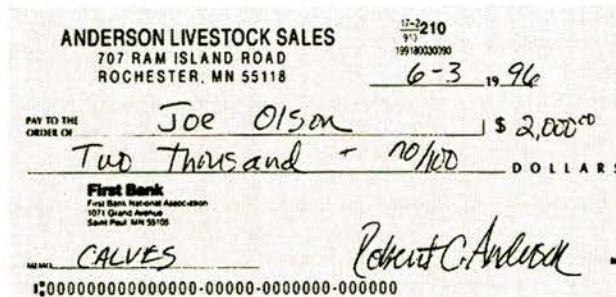 ANDERSON LIVESTOCK SALES
707 RAM ISLAND ROAD
ROCHESTER, MN 55118
17-2 210
910
199180030090
6-3 1996
PAY TO THE
ORDER OF Joe Olson $ 2,000 00
Two Thousand - no/100 DOLLARS
First Bank
First Bank National Association
1071 Grand Avenue
Saint Paul MN 55105
MEMO CALVES Robert C. Anderson
⑆0000000000000000-00000-0000000000-000000